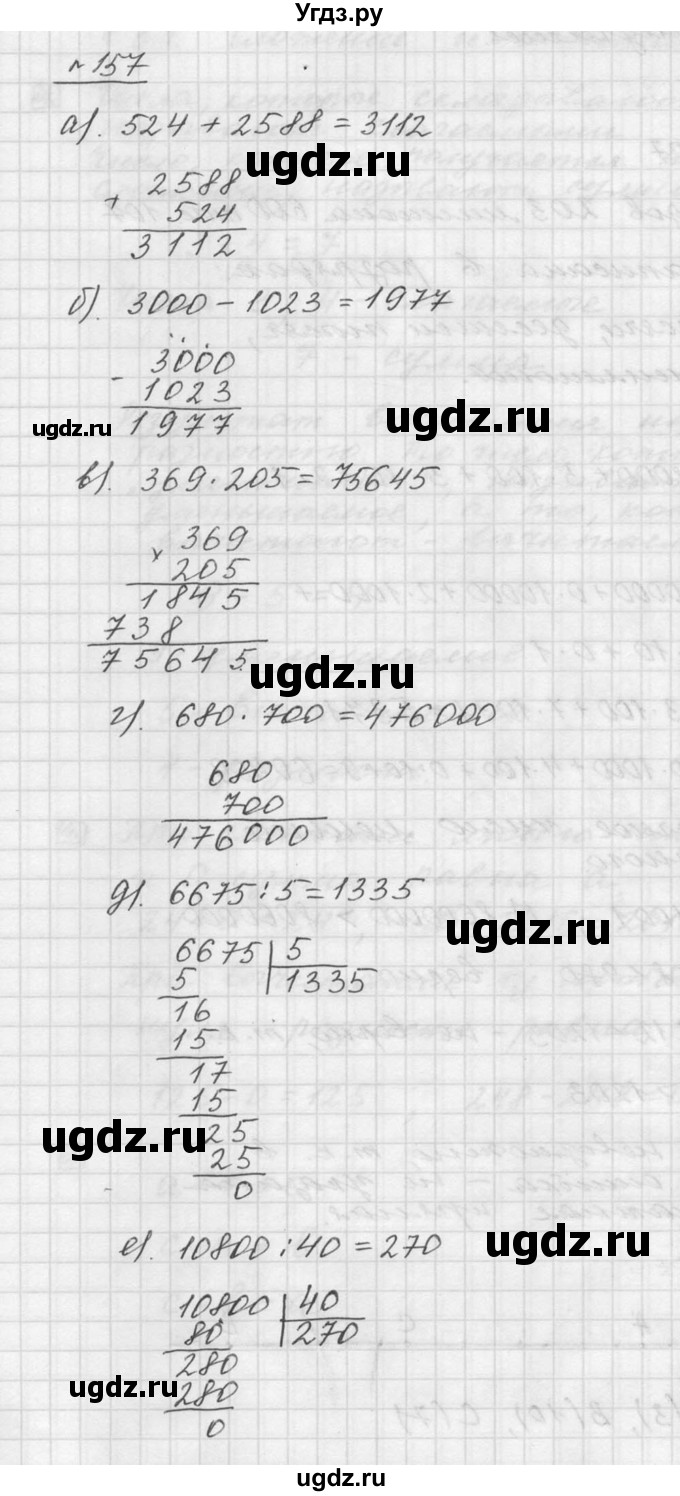 Угдз.ру
№157
а). 524 + 2588 = 3112
ugdz.ru
+ 2588
524
3112
б). 3000 - 1023 = 1977
- 3000
1023
ugdz.ru
ugdz.ru
1977
в). 369 · 205 = 75645
× 369
205
1845
738
75645
ugdz.ru
г). 680 · 700 = 476000
680
700
476000
ugdz.ru
д). 6675 : 5 = 1335
ugdz.ru
6675 | 5
5 1335
16
15
17
15
ugdz.ru
25
25
0
е). 10800 : 40 = 270
ugdz.ru
10800 | 40
80 270
280
ugdz.ru
280
0
ugdz.ru